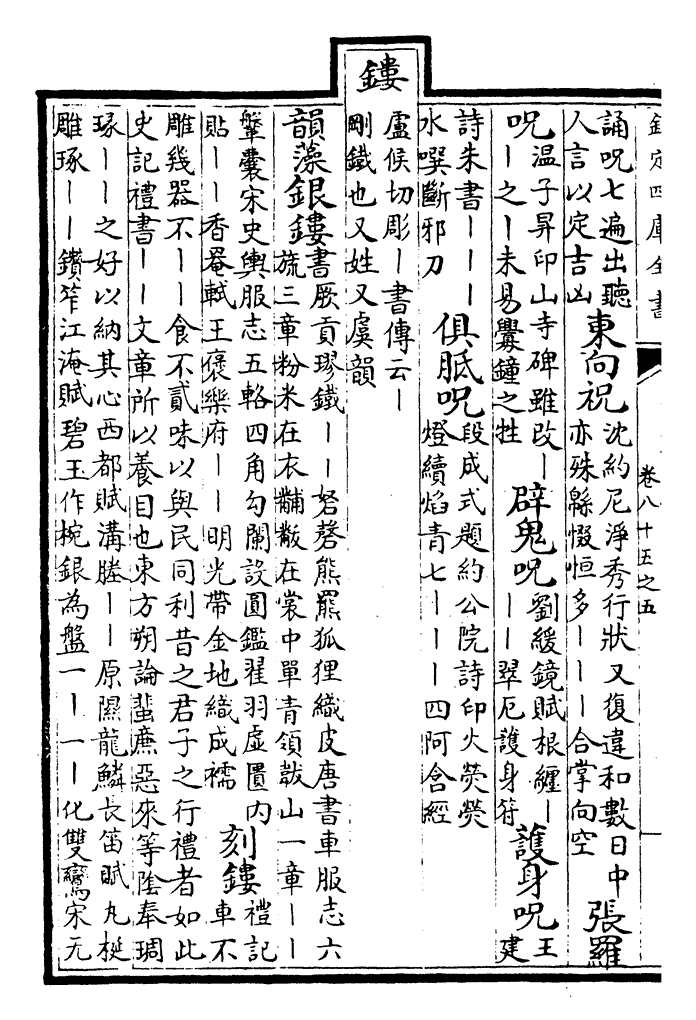 欽定四庫全書　卷八十五之五
誦呪七遍出聽
人言以定吉凶
東向祝
沈約尼淨秀行狀又復違和數日中
亦殊緜惙恒多丨丨丨合掌向空
張羅
呪
溫子昇印山寺碑雖改丨
丨之丨未易釁鐘之牲
辟鬼呪
劉緩鏡賦根纏丨
丨丨翠厄護身符
護身呪
王
建
詩朱書丨丨丨
水噀斷邪刀
俱胝呪
段成式題約公院詩印火熒熒
燈續焰青七丨丨丨四阿含經
鏤
盧侯切彫丨書傳云丨
剛鐵也又姓又虞韻
韻藻銀鏤
書厥貢璆鐵丨丨砮磬熊羆狐狸織皮唐書車服志六
旒三章粉米在衣黼黻在裳中單青領黻山一章丨丨
鞶囊宋史輿服志五輅四角勾闌設圓鑑翟羽虛匱內
貼丨丨香罨軾王褒樂府丨丨明光帶金地織成襦
刻鏤
禮記
車不
雕幾器不丨丨食不貳味以與民同利昔之君子之行禮者如此
史記禮書丨丨文章所以養目也東方朔論蜚廉惡來等陰奉琱
琢丨丨之好以納其心西都賦溝塍丨丨原隰龍鱗長笛賦丸梴
雕琢丨丨鑽笮江淹賦碧玉作椀銀為盤一丨一丨化雙鸞宋无